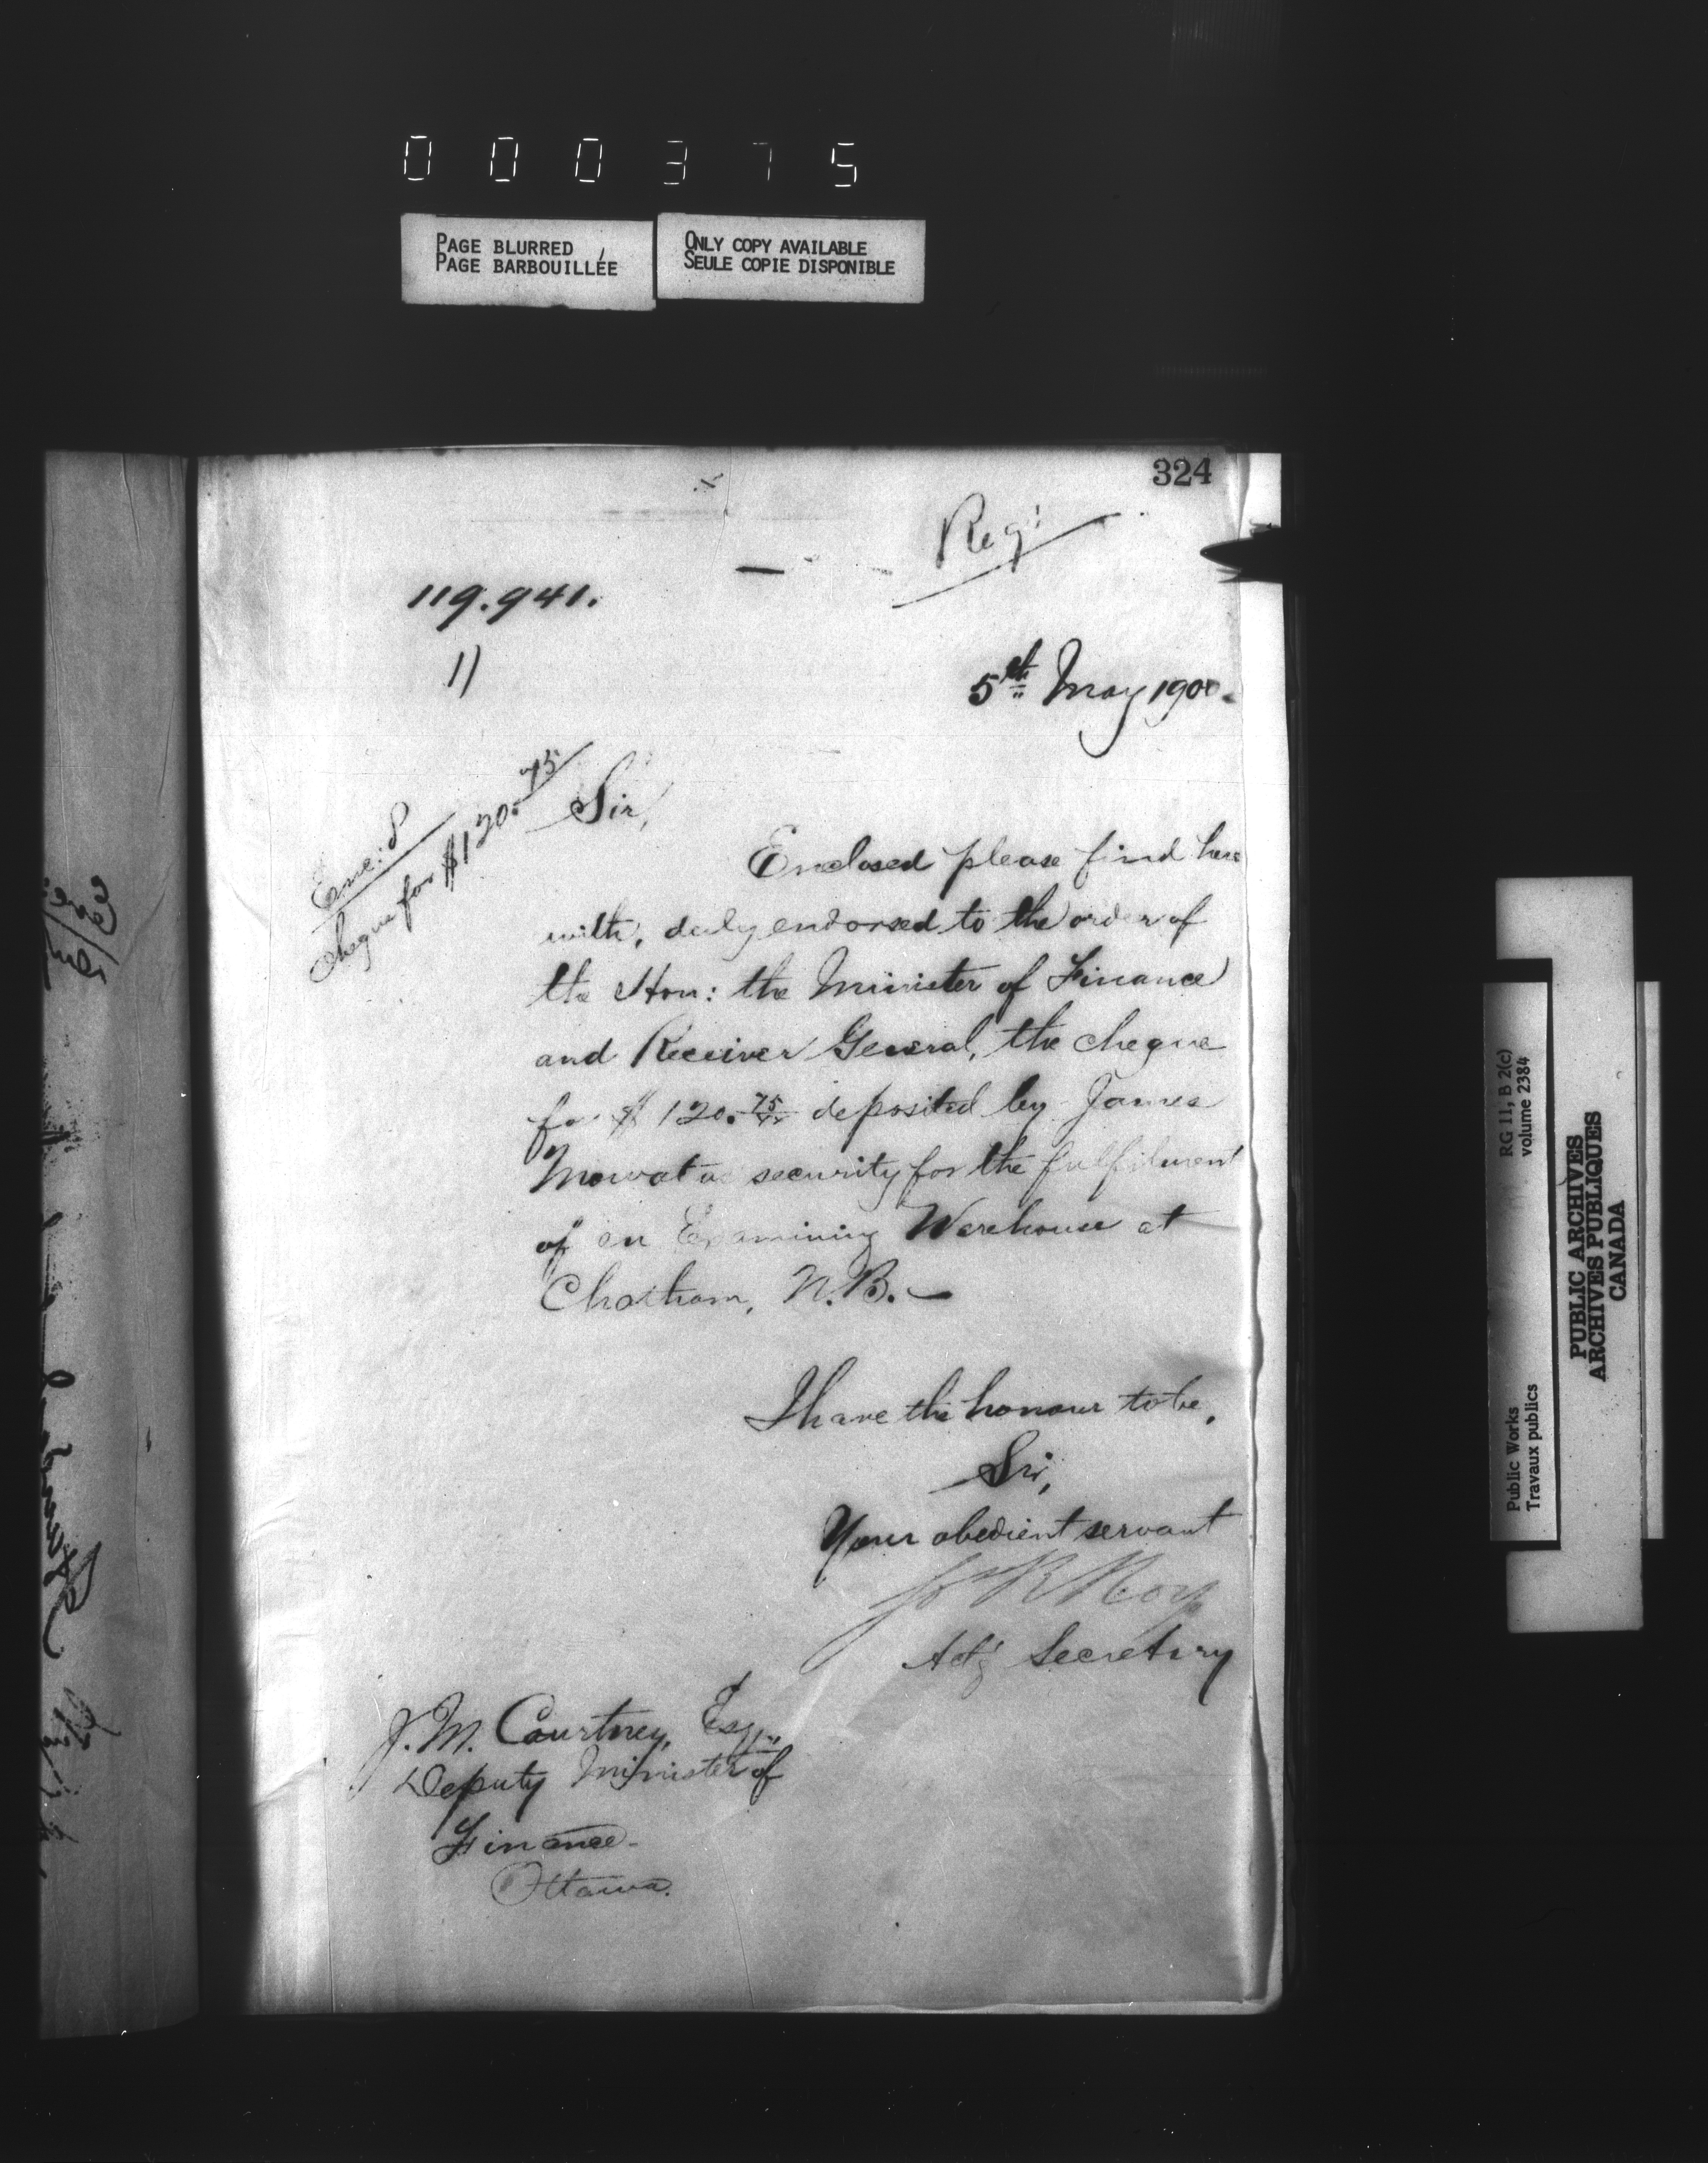 000375
PAGE BLURRED
PAGE BARBOUILLÉE
ONLY COPY AVAILABLE
SEULE COPIE DISPONIBLE
324
Reg'd
119.941.
1)
5th May 1900.
Enc: 8
Cheque for $120.75
Sir,
Enclosed please find here
with, duly endorsed to the order of
the Hon: the Minister of Finance
and Receiver General, the cheque
for $120.75 deposited by James
Mowat as security for the fulfilment
of an Examining Warehouse at
Chatham, N.B.—
I have the honour to be,
Sir,
Your obedient servant
Jos R Roy
Actg Secretary
J. M. Courtney, Esq.,
Deputy Minister of
Finance
Ottawa.
RG 11, B 2(c)
volume 2384
Public Works
Travaux publics
PUBLIC ARCHIVES
ARCHIVES PUBLIQUES
CANADA